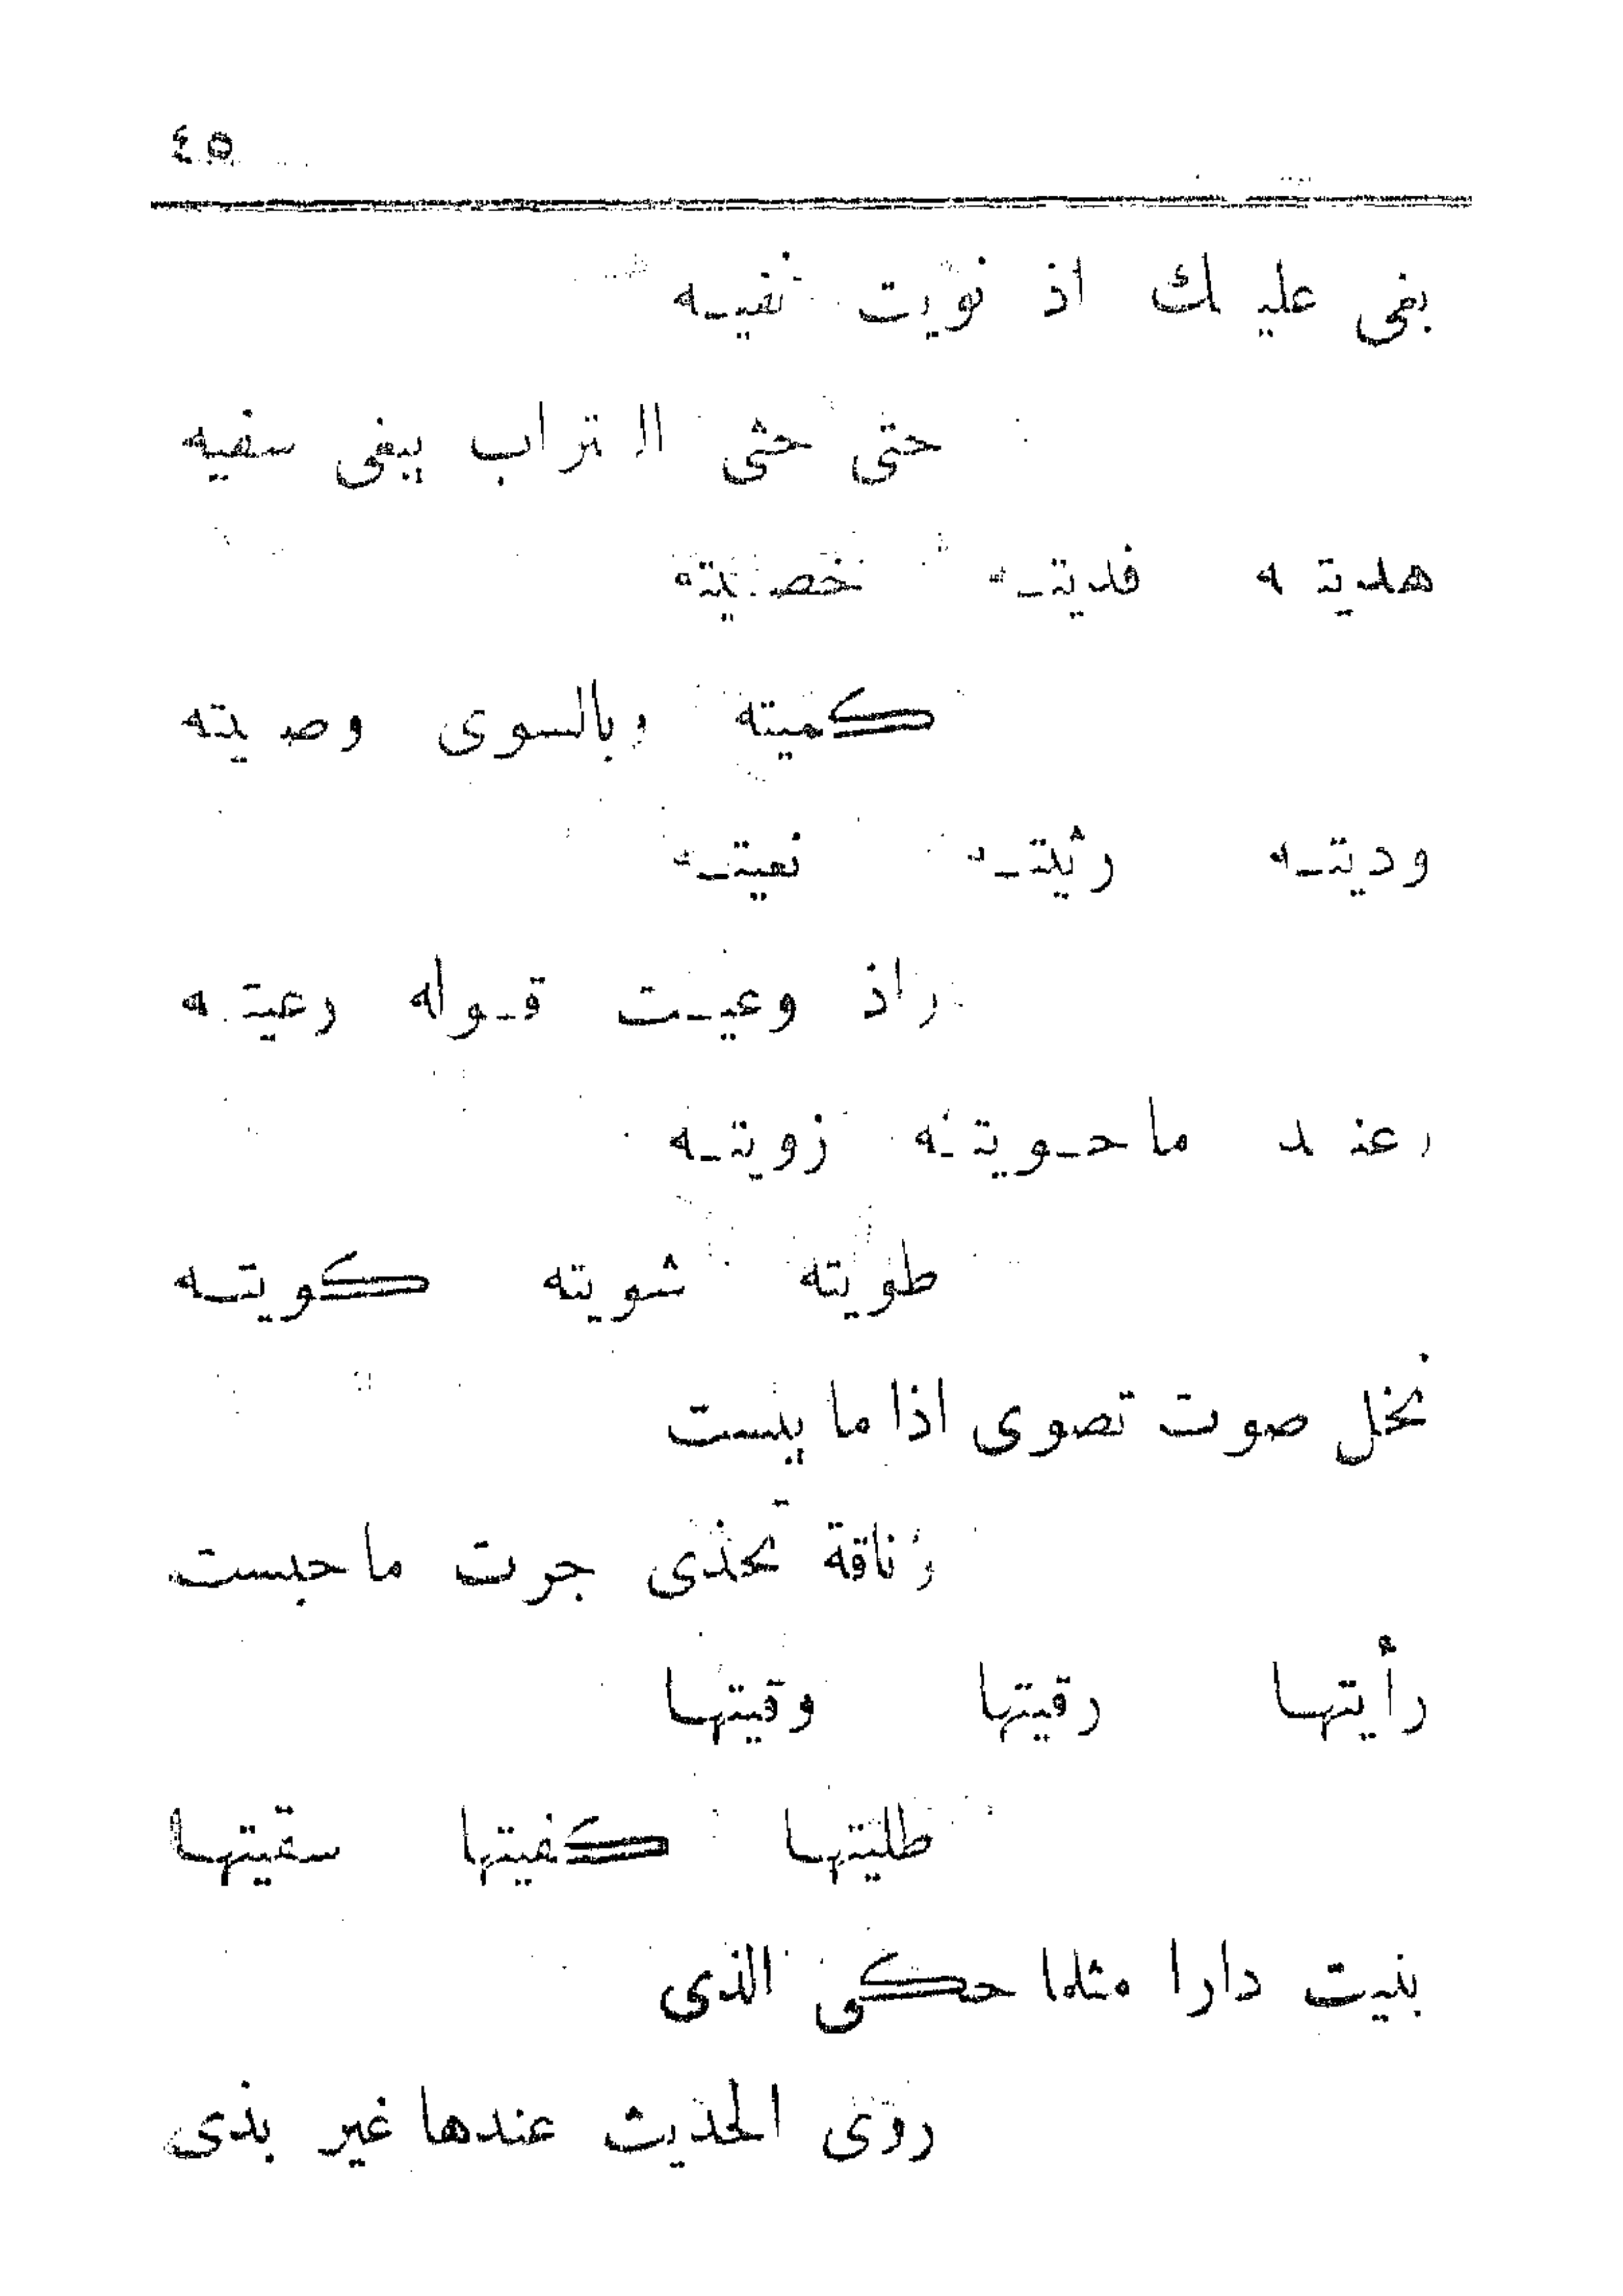 ٤٥
بغى عليك اذ نويت نفيه
حتى حثى التراب يبغى سفيه
هديته فديته خصيته
كميته وبالسوى وصيته
وديته رثيته نعيته
واذ وعيت قوله رعيته
وعند ماحويته زويته
طويته شويته كويته
نخل صوت تصوى اذا مايبست
وناقة تحذى جرت ماحبست
رأيتها رقيتها وقيتها
طليتها كفيتها سقيتها
بنيت دارا مثلما حكى الذى
روى الحديث عندها غير بذى